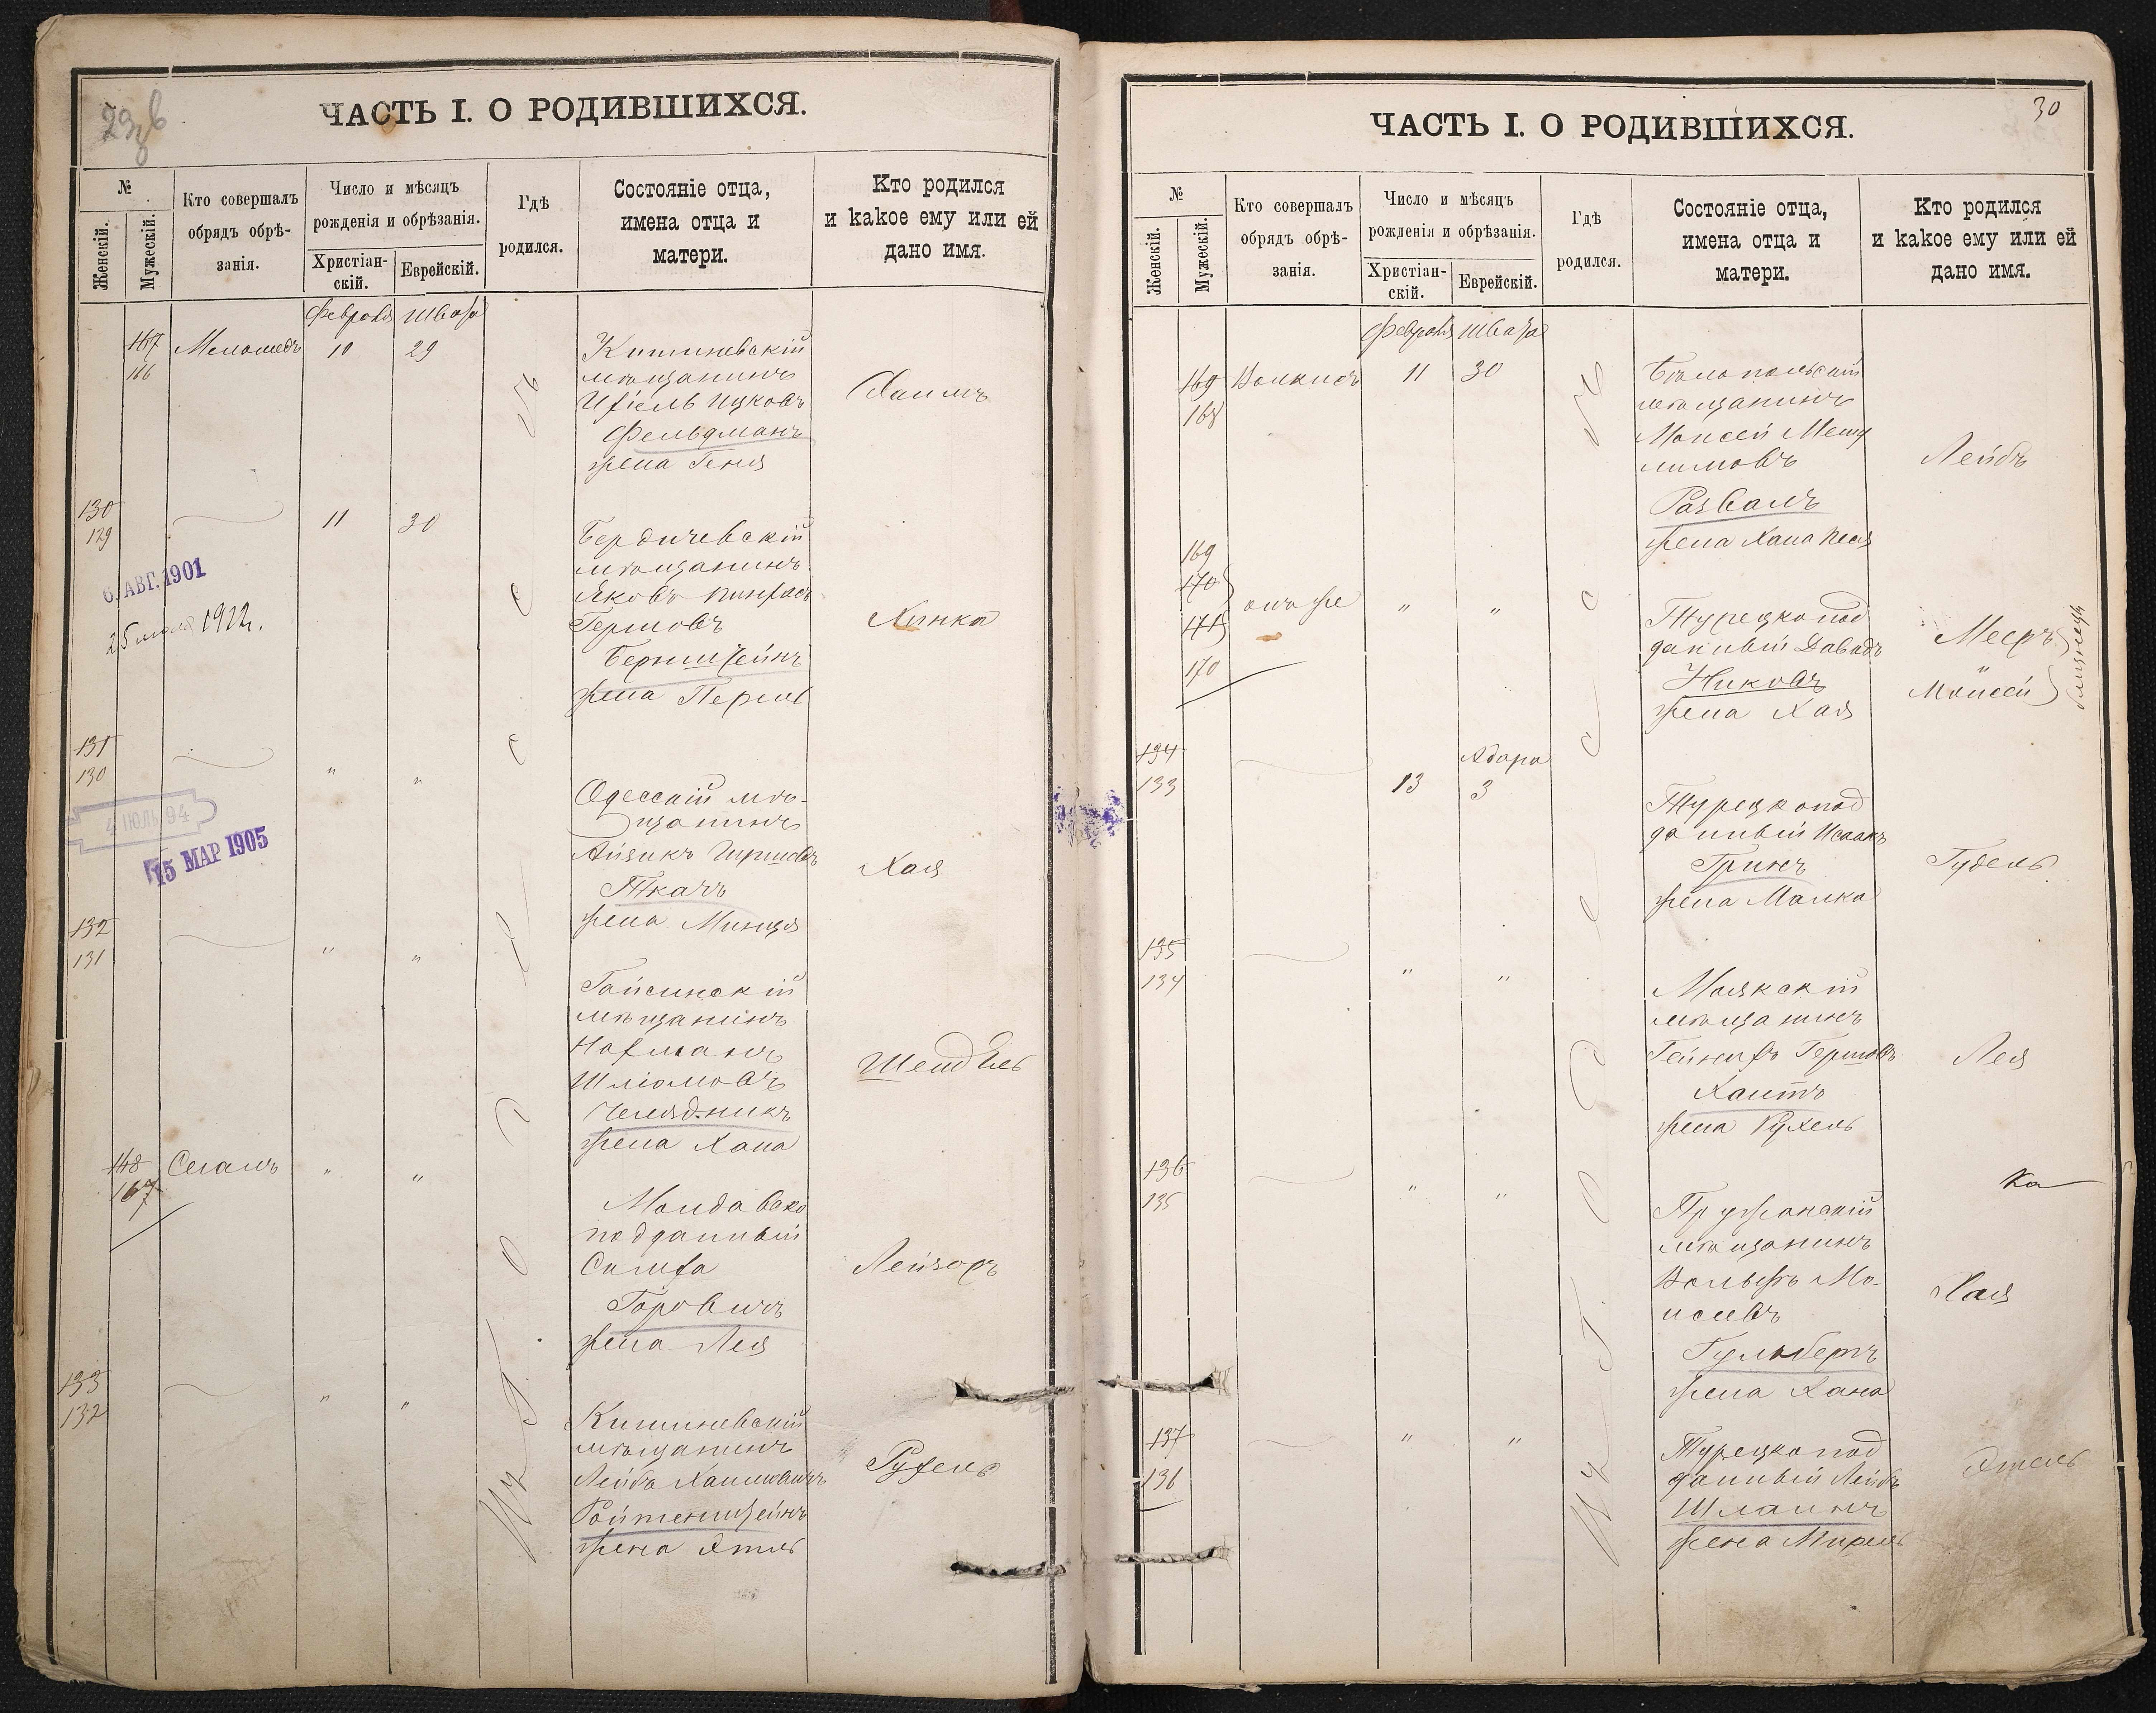 ЧАСТЬ I. О РОДИВШИХСЯ.
№
Женскій.
Мужескій.
Кто совершалъ
обрядъ обрѣ-
занія.
Число и мѣсяцъ
рожденія и обрѣзанія.
Христіан-
скій.
Еврейскій.
Гдѣ
родился.
Состояніе отца,
имена отца и
матери.
Кто родился
и какое ему или ей
дано имя.
Февраля Швата
167 Меламедъ 10 29
166
Кишиневскій
мѣщанинъ
Ицковъ
Фельдманъ
жена Геня
Хаимъ
130
129
11 30
Бердичевскій
мѣщанинъ
Яковъ Пинхасъ
Гершовъ
Бернштейнъ
жена Перль
Хинка
6. АВГ. 1901
25 1922 г.
131
130
" "
Одесскій мѣ-
щанинъ
Айзикъ Гершовъ
Ткачъ
жена Минця
Хая
4 ІЮЛЬ 94
15 МАР 1905
132
131
" "
Гайсинскій
мѣщанинъ
Нахманъ
Шліомовъ
Челядникъ
жена Хана
Шендель
148 Сегалъ " "
167
Молдавско
подданный
Симха
Горовичъ
жена Лея
Лейзоръ
133
132
" "
Кишиневскій
мѣщанинъ
Лейбъ Хаимовичъ
Ройтенштейнъ
жена Этль
Рухель
30
ЧАСТЬ I. О РОДИВШИХСЯ.
№
Женскій.
Мужескій.
Кто совершалъ
обрядъ обрѣ-
занія.
Число и мѣсяцъ
рожденія и обрѣзанія.
Христіан-
скій.
Еврейскій.
Гдѣ
родился.
Состояніе отца,
имена отца и
матери.
Кто родился
и какое ему или ей
дано имя.
Февраля Швата
169 Волкисъ 11 30
168
Бѣлопольскій
мѣщанинъ
Моисей Мешу
лимовъ
Развалъ
жена Хана Песя
Лейбъ
169
170
171
170
онъ же " "
Турецкопод
данный Давидъ
Ициковъ
жена Хая
Мееръ
"
Моисей
близнецы
134
133
Адара
13 3
Турецкопод
данный Исаакъ
Гринъ
жена Малка
Гудель
135
134
" "
Маякскій
мѣщанинъ
Гейнихъ Гершовъ
Хаитъ
жена Рухель
Лея
136
135
" "
Пружанскій
мѣщанинъ
Вольфъ Мо-
исеевъ
Гульберъ
жена Хана
Ка
Хая
137
136
" "
Турецкопод
данный Лейбъ
Шлаинъ
жена Мирель
Этель